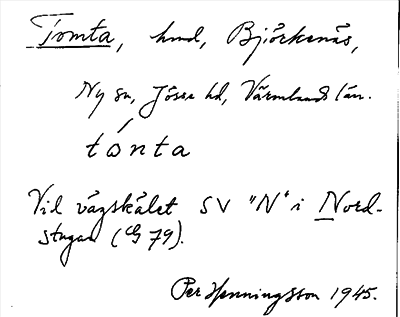 Tomta, hmd, Björkenäs,
Ny sn, Jösse hd, Värmlands län.
tónta
Vid vägskälet SV "N" i Nord-
stugan (G 79).
Per Henningsson 1945.